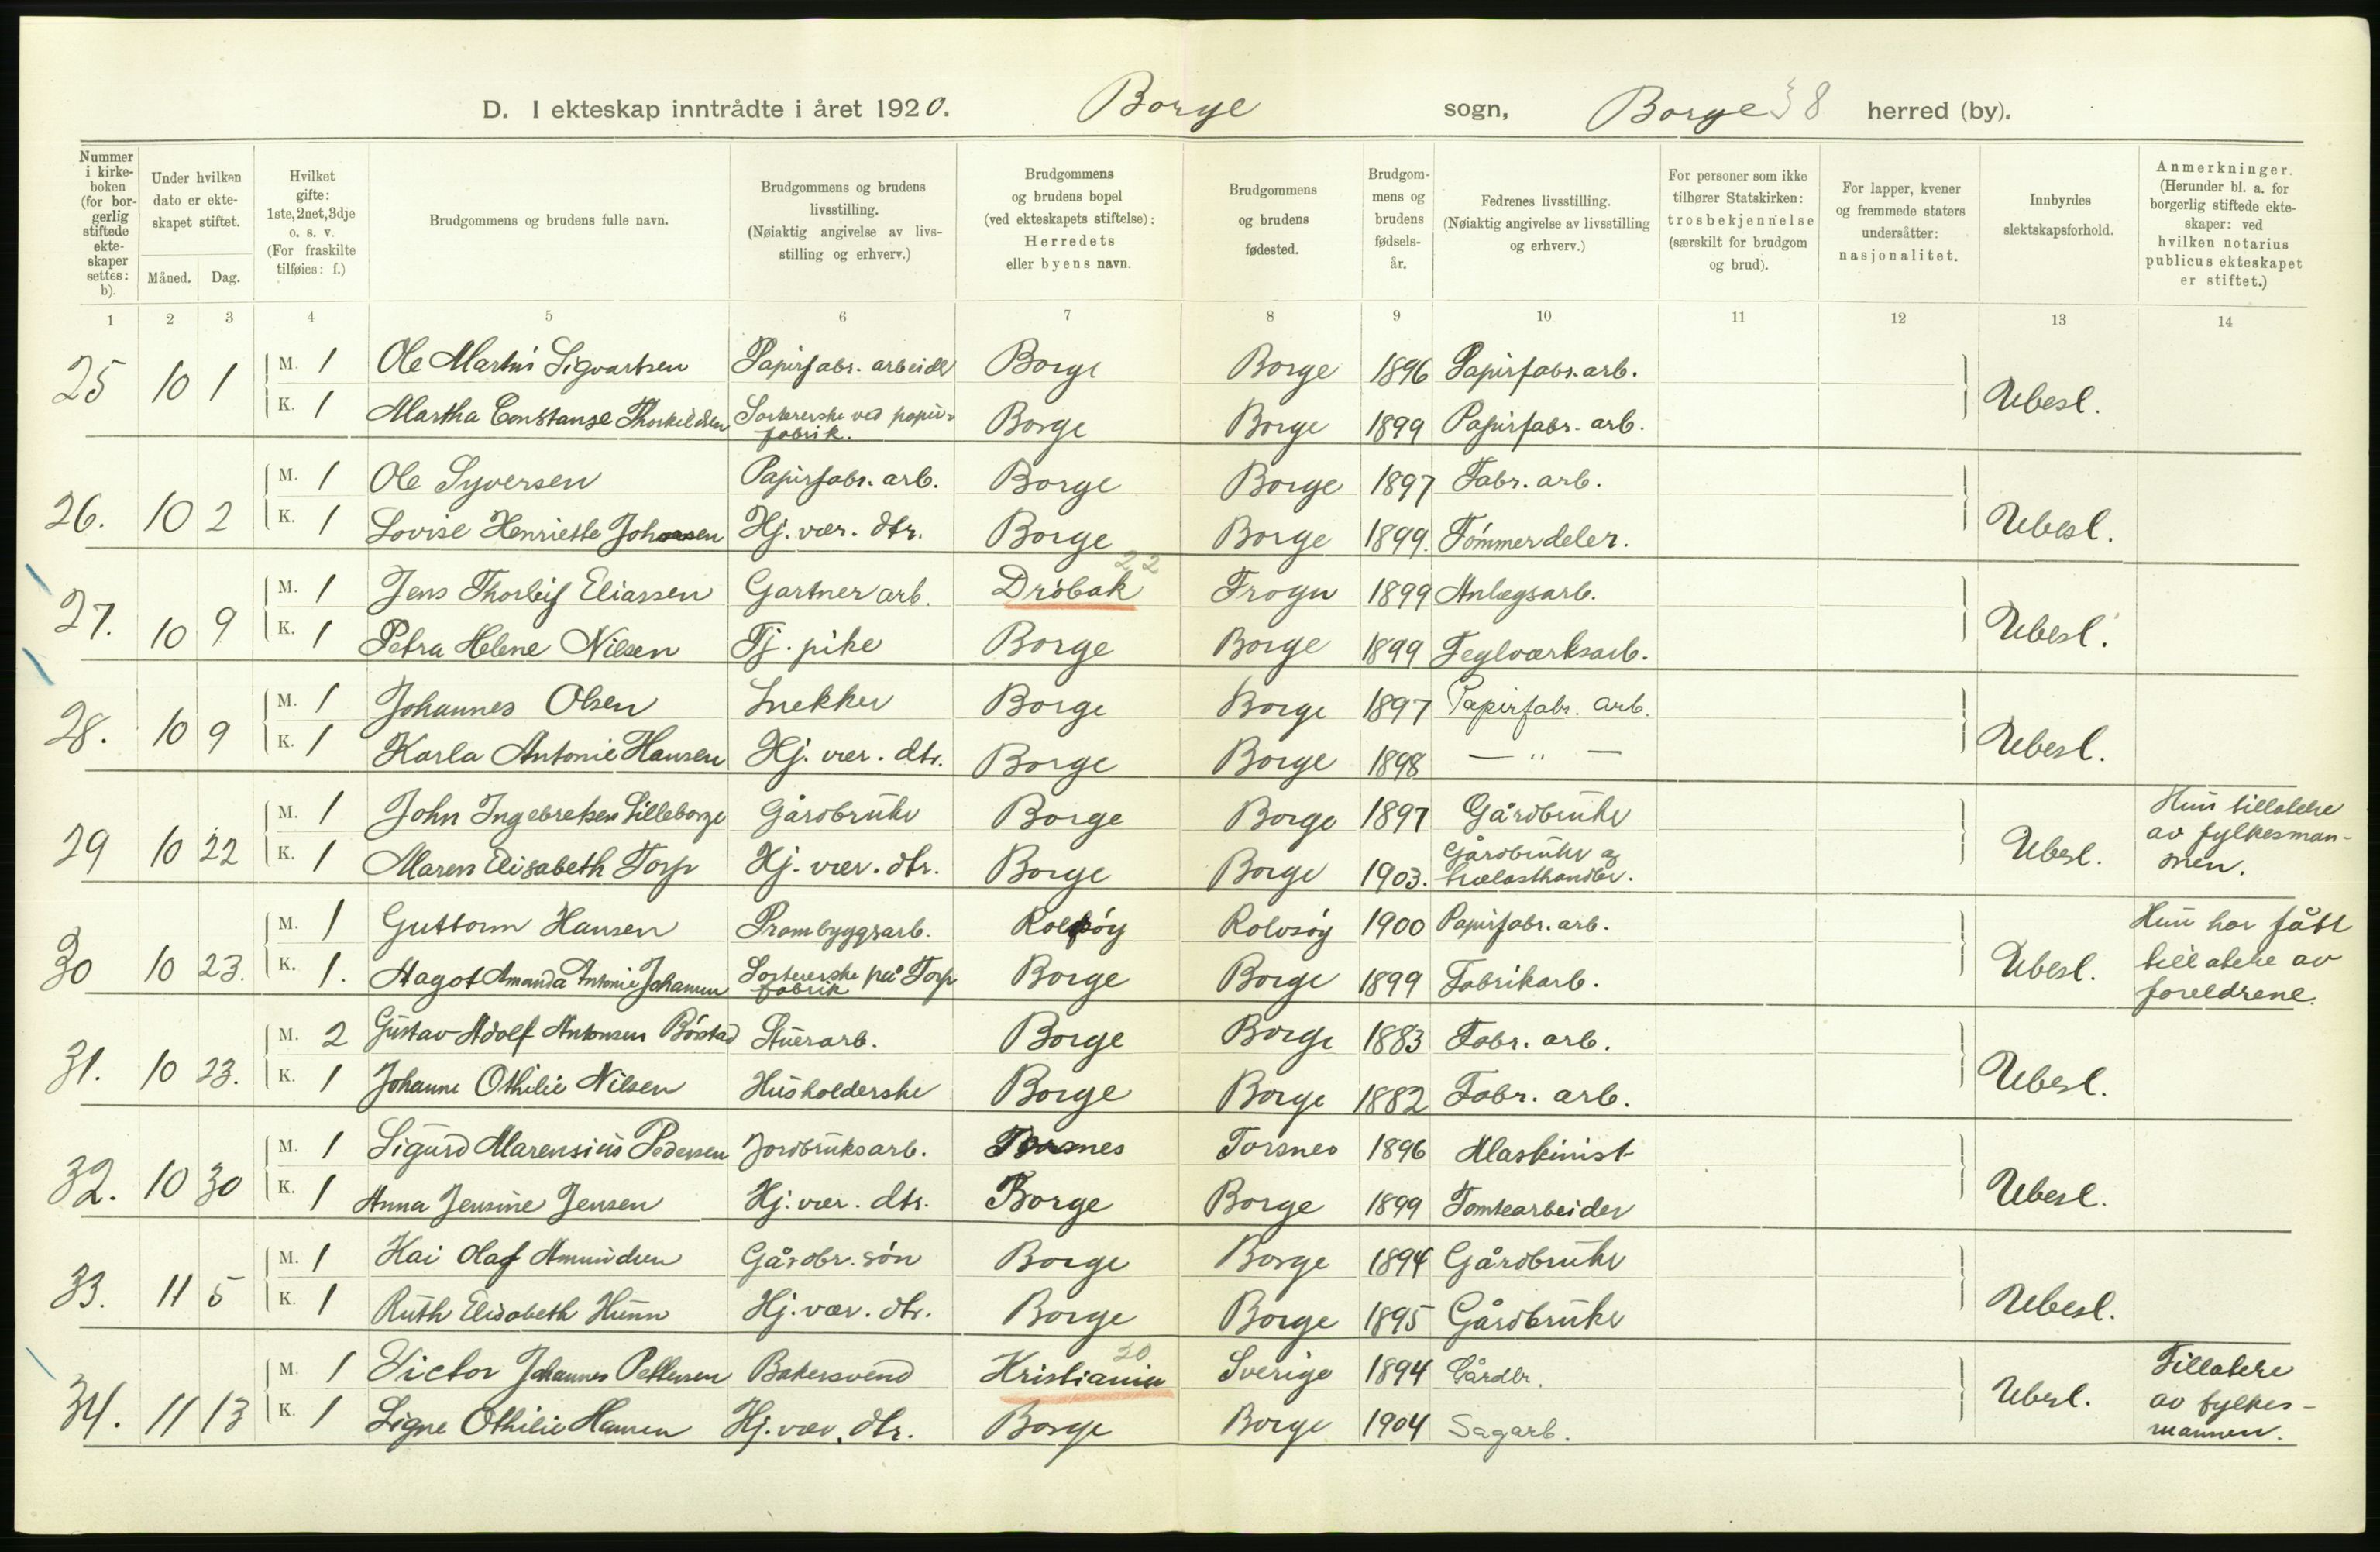 D. I ekteskap inntrådte i året 1920. Borge sogn, Borge 38 herred (by).
Nummer i kirke- boken (for bor- gerlig stiftede ekte- skaper settes: b).
Under hvilken dato er ekte- skapet stiftet.
Måned. Dag.
Hvilket gifte: 1ste, 2net, 3dje o. s. v. (For fraskilte tilføies: f.)
Brudgommens og brudens fulle navn.
Brudgommens og brudens livsstilling. (Nøiaktig angivelse av livs- stilling og erhverv.)
Brudgommens og brudens bopel (ved ekteskapets stiftelse): Herredets eller byens navn.
Brudgommens og brudens fødested.
Brudgom- mens og brudens fødsels- år.
Fedrenes livsstilling. (Nøiaktig angivelse av livsstilling og erhverv.)
For personer som ikke tilhører Statskirken: trosbekjennelse (særskilt for brudgom og brud).
For lapper, kvener og fremmede staters undersåtter: nasjonalitet.
Innbyrdes slektskapsforhold.
Anmerkninger. (Herunder bl. a. for borgerlig stiftede ekte- skaper: ved hvilken notarius publicus ekteskapet er stiftet.)
1 2 3 4 5 6 7 8 9 10 11 12 13 14
25 10 1 M. 1 Ole Martin Sigvartsen Papirfabr. arbeider Borge Borge 1896 Papirfabr. arb. Ubesl.
K. 1 Martha Constanse Thorkildsen Sorterske ved papir- fabrik. Borge Borge 1899 Papirfabr. arb.
26. 10 2 M. 1 Ole Syversen Papirfabr. arb. Borge Borge 1897 Fabr. arb. Ubesl.
K. 1 Lovise Henriette Johansen Hj. vær. dtr. Borge Borge 1899. Tømmerdeler.
27. 10 9 M. 1 Jens Thorleif Eliassen Gartner arb. Drøbak 22 Frogn 1899 Anlegsarb. Ubesl.
K. 1 Petra Helene Nilsen Tj. pike Borge Borge 1899 Teglværksarb.
28. 10 9 M. 1 Johannes Olsen Snekker Borge Borge 1897 Papirfabr. arb. Ubesl.
K. 1 Karla Antonie Hansen Hj. vær. dtr. Borge Borge 1898 — " —
29 10 22 M. 1 John Ingebretsen Lilleborge Gårdbruker Borge Borge 1897 Gårdbruker Ubesl. Hun tillatelse av fylkesman- nen.
K. 1 Maren Elisabeth Torp Hj. vær. dtr. Borge Borge 1903. Gårdbruker og trælasthandler.
30 10 23. M. 1 Guttorm Hansen Prambyggsarb. Rolvsøy Rolvsøy 1900 Papirfabr. arb. Ubesl. Hun har fått tillatelse av foreldrene.
K. 1. Aagot Amanda Antonie Johansen Sorterske på Torp fabrik Borge Borge 1899 Fabrikarb.
31. 10 23. M. 2 Gustav Adolf Antonsen Bøstad Stuerarb. Borge Borge 1883 Fabr. arb. Ubesl.
K. 1 Johanne Othilie Nilsen Husholderske Borge Borge 1882 Fabr. arb.
32. 10 30 M. 1 Sigurd Marensius Pedersen Jordbruksarb. Torsnes Torsnes 1896 Maskinist Ubesl.
K. 1 Anna Jensine Jensen Hj. vær. dtr. Borge Borge 1899 Tomtearbeider
33. 11 5 M. 1 Kai Olaf Amundsen Gårdbr. søn Borge Borge 1894 Gårdbruker Ubesl.
K. 1 Ruth Elisabeth Hunn Hj. vær. dtr. Borge Borge 1895 Gårdbruker
34. 11 13 M. 1 Victor Johannes Pettersen Bakersvend Kristiania 20 Sverige 1894 Gårdbr. Ubesl. Tillatelse av fylkes- mannen.
K. 1 Signe Othilie Hansen Hj. vær. dtr. Borge Borge 1904 Sagarb.